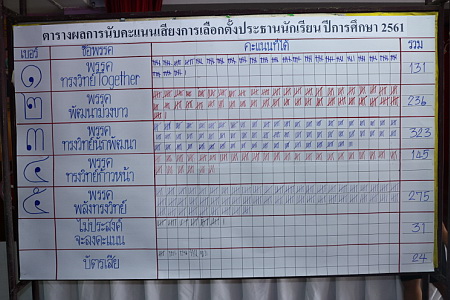 ตารางผลการนับคะแนนเสียงการเลือกตั้งประธานนักเรียน ปีการศึกษา 2561
เบอร์ ชื่อพรรค คะแนนที่ได้ รวม
๑ พรรค ทรงวิทย์Together 131
๒ พรรค พัฒนาม่วงขาว 236
๓ พรรค ทรงวิทย์นักพัฒนา 323
๔ พรรค ทรงวิทย์ก้าวหน้า 145
๕ พรรค พลังทรงวิทย์ 275
ไม่ประสงค์ จะลงคะแนน 31
บัตรเสีย 24